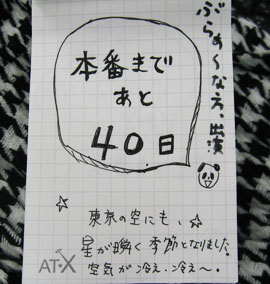 ぶらぁ〜な方、出演
本番まで
あと
40日
東京の空にも、
星が瞬く季節となりました。
空気が冷え、冷え〜。
AT-X